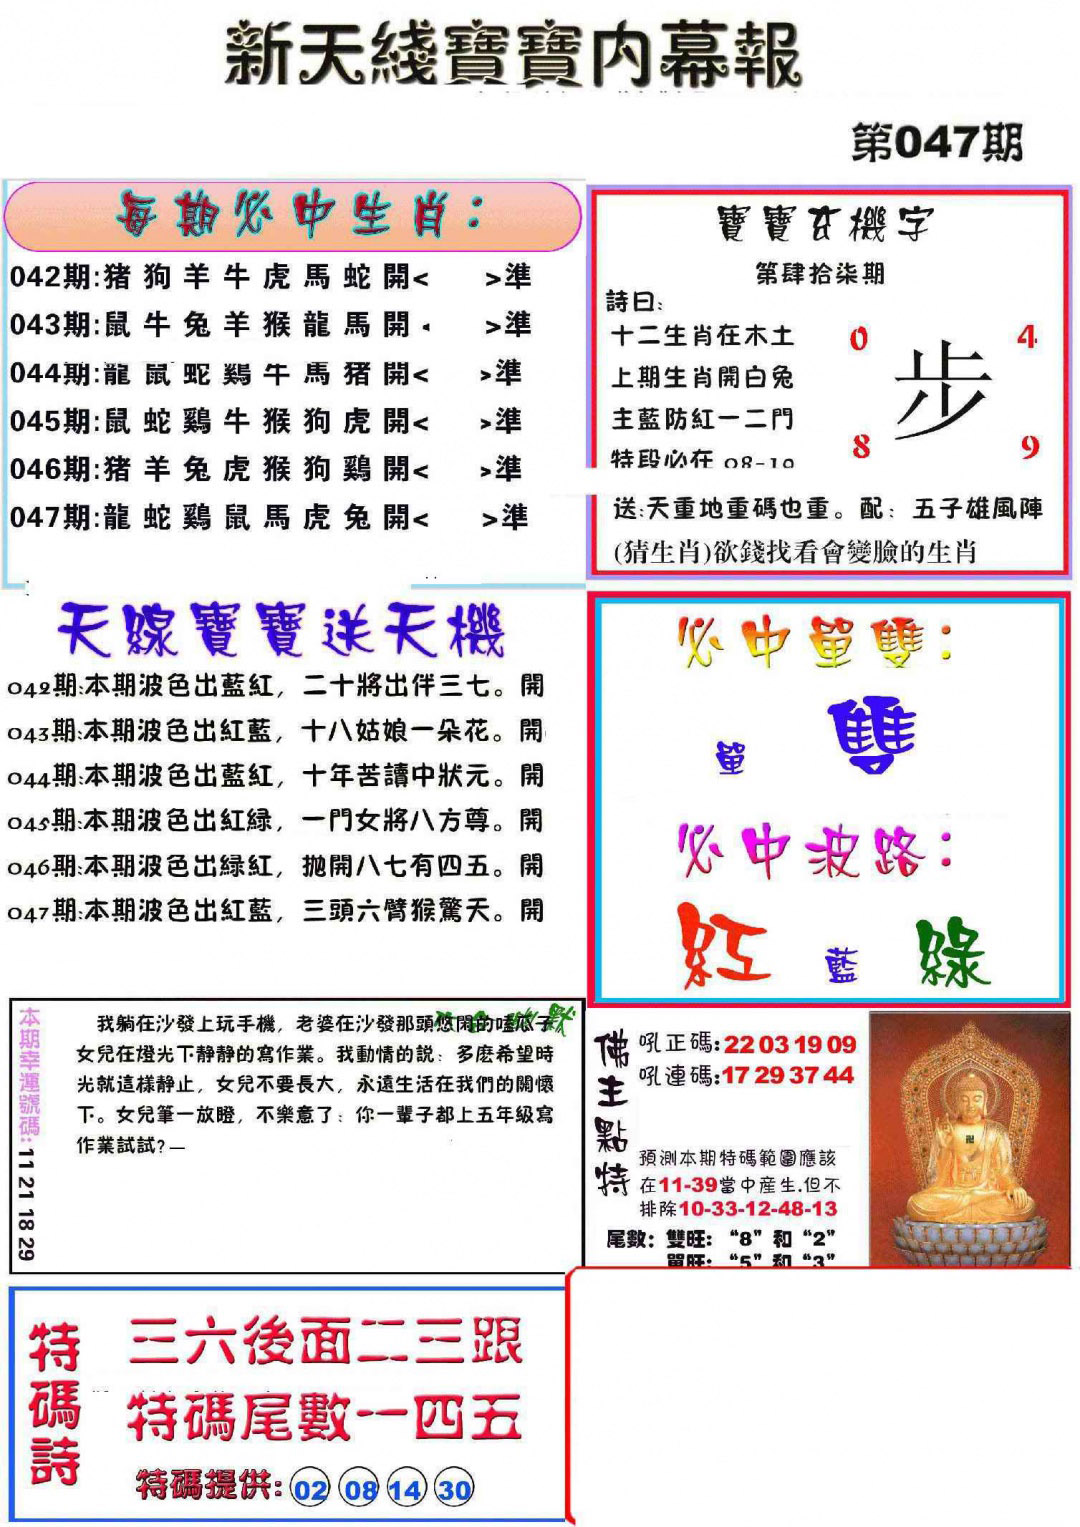 新天綫寶寶内幕報
第047期
每期必中生肖：
042期:猪狗羊牛虎馬蛇開< >準
043期:鼠牛兔羊猴龍馬開 >準
044期:龍鼠蛇鷄牛馬猪開< >準
045期:鼠蛇鷄牛猴狗虎開< >準
046期:猪羊兔虎猴狗鷄開< >準
047期:龍蛇鷄鼠馬虎兔開< >準
寶寶玄機字
第肆拾柒期
詩曰:
十二生肖在木土
上期生肖開白兔
主藍防紅一二門
特段必在 08-19
0 4
步
8 9
送:天重地重碼也重。配：五子雄風陣
(猜生肖)欲錢找看會變臉的生肖
天線寶寶送天機
042期:本期波色出藍紅，二十將出伴三七。開
043期:本期波色出紅藍，十八姑娘一朵花。開
044期:本期波色出藍紅，十年苦讀中狀元。開
045期:本期波色出紅緑，一門女將八方尊。開
046期:本期波色出緑紅，拋開八七有四五。開
047期:本期波色出紅藍，三頭六臂猴驚天。開
必中單雙：
單 雙
必中波路：
紅 藍 綠
本期幸運號碼:11 21 18 29
我躺在沙發上玩手機，老婆在沙發那頭悠閑的嗑瓜子
女兒在燈光下静静的寫作業。我動情的説：多麽希望時
光就這樣静止，女兒不要長大，永遠生活在我們的關懷
下。女兒筆一放瞪，不樂意了：你一輩子都上五年級寫
作業試試?—
佛主點特
吼正碼:22 03 19 09
吼連碼:17 29 37 44
預測本期特碼範圍應該
在11-39當中産生.但不
排除10-33-12-48-13
尾數：雙旺：“8”和“2”
單旺：“5”和“3”
特碼詩
三六後面二三跟
特碼尾數一四五
特碼提供: 02 08 14 30